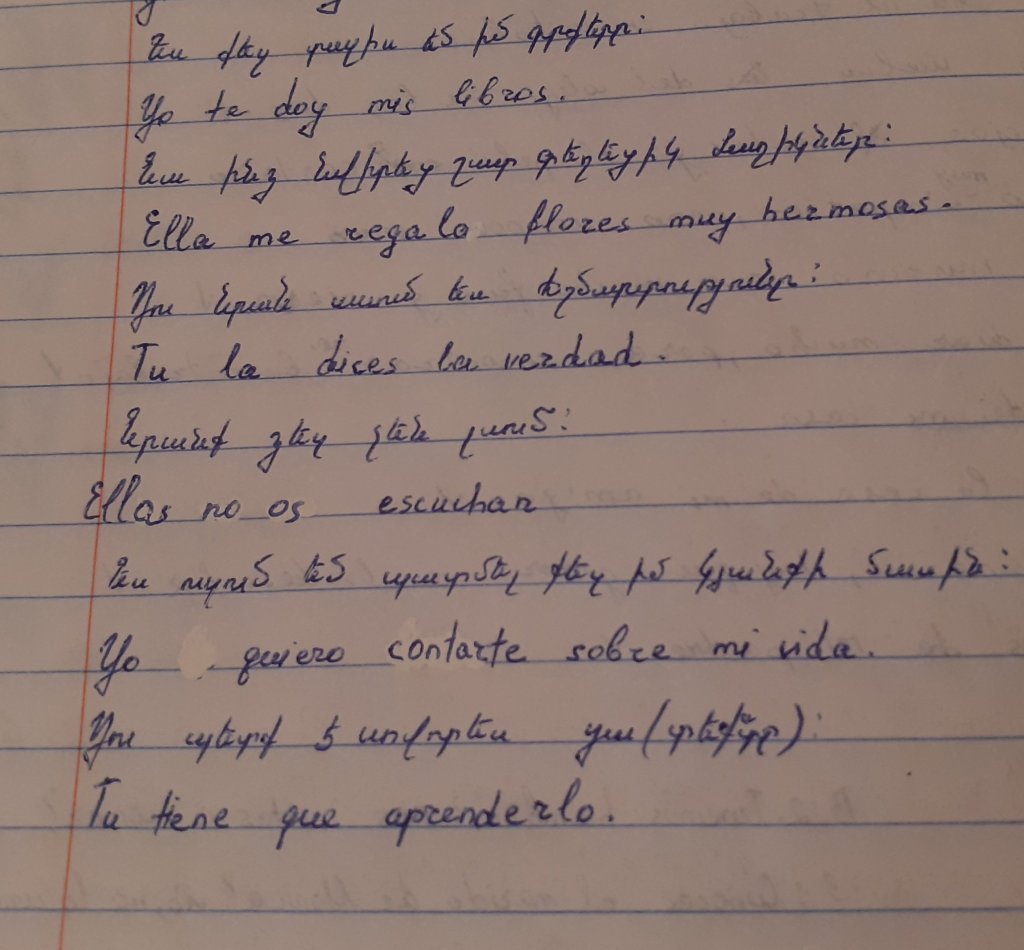 Ես քեզ տալիս եմ իմ գրքերը:
Yo te doy mis libros.
Նա ինձ նվիրեց շատ գեղեցիկ ծաղիկներ:
Ella me regala flores muy hermosas.
Դու նրան ասում ես ճշմարտությունը:
Tu la dices la verdad.
Նրանք ձեզ չեն լսում:
Ellas no os escuchan
Ես ուզում եմ պատմել քեզ իմ կյանքի մասին:
Yo quiero contarte sobre mi vida.
Դու պետք է սովորես դա
Tu tiene que aprenderlo.